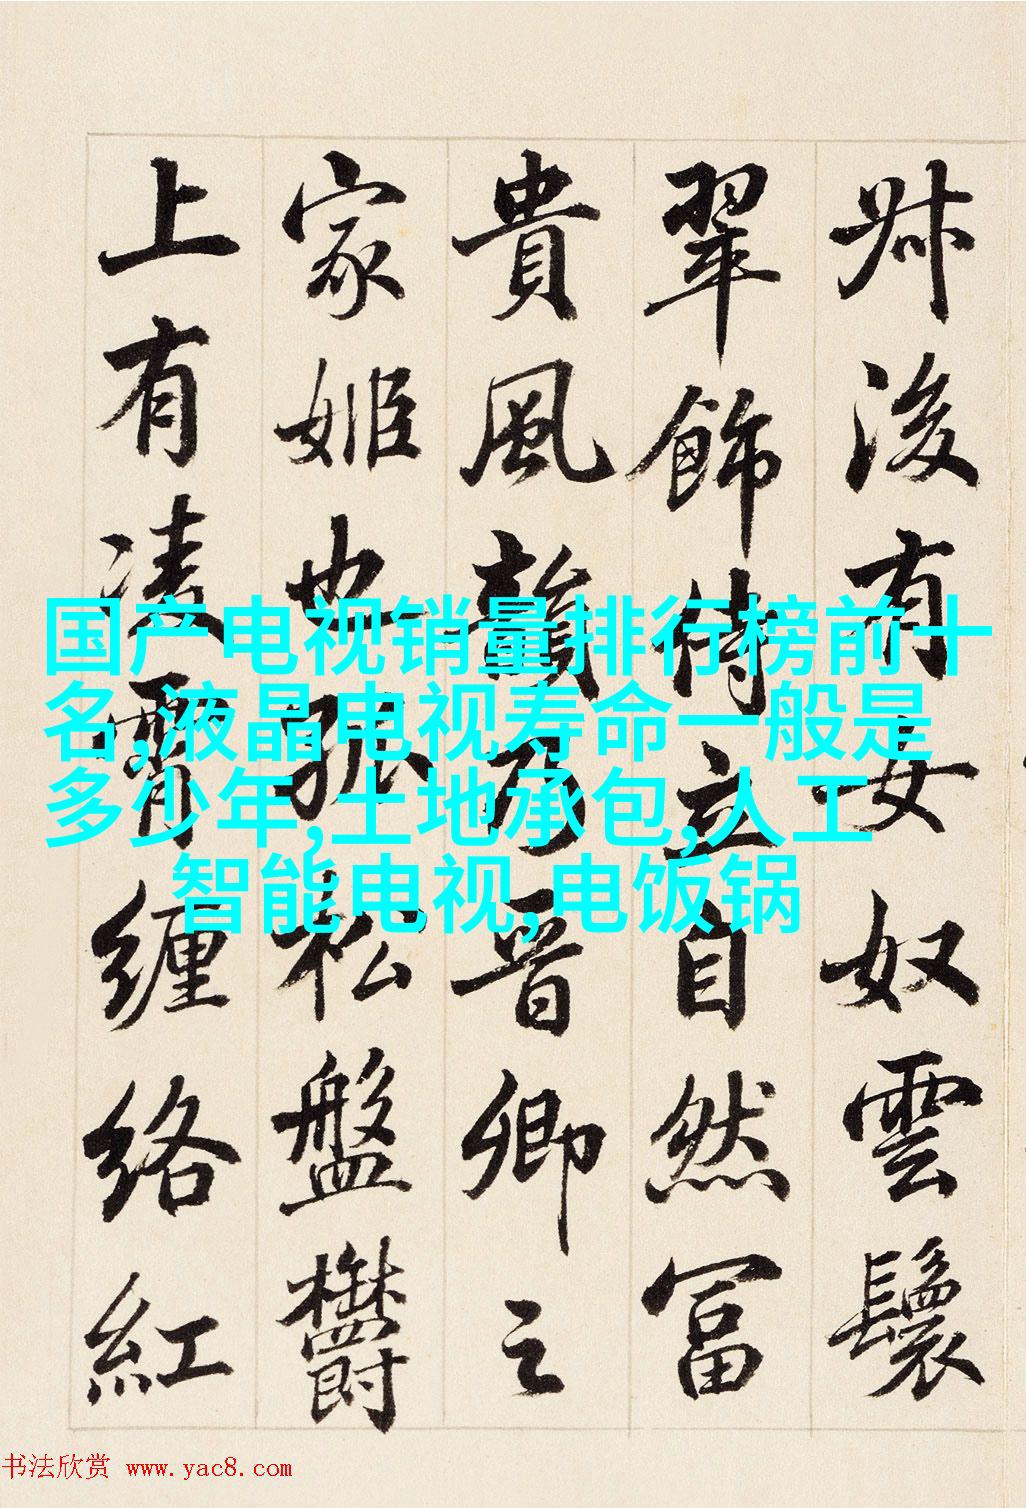 叔後有女奴雲鬟
翠飾侍立自然富
貴風韻乃晉卿之
家姬也孤松盤欝
上有凌霄纏絡紅
国产电视销量排行榜前十
名,液晶电视寿命一般是
多少年,土地承包,人工
智能电视,电饭锅
书法欣赏 www.yac8.com